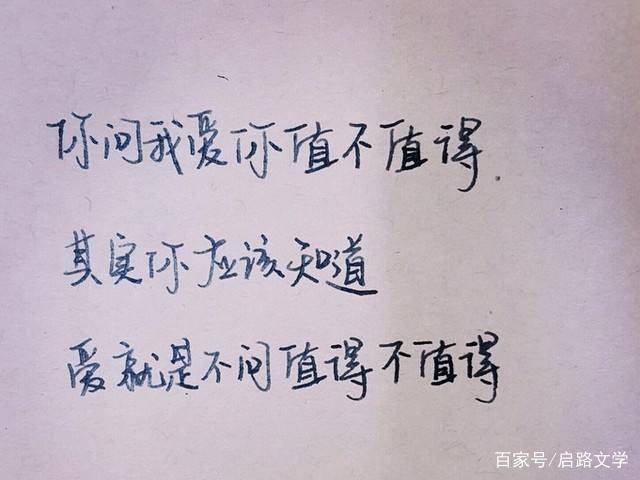 你问我爱你值不值得.
其实你应该知道
爱就是不问值得不值得
百家号/启路文学